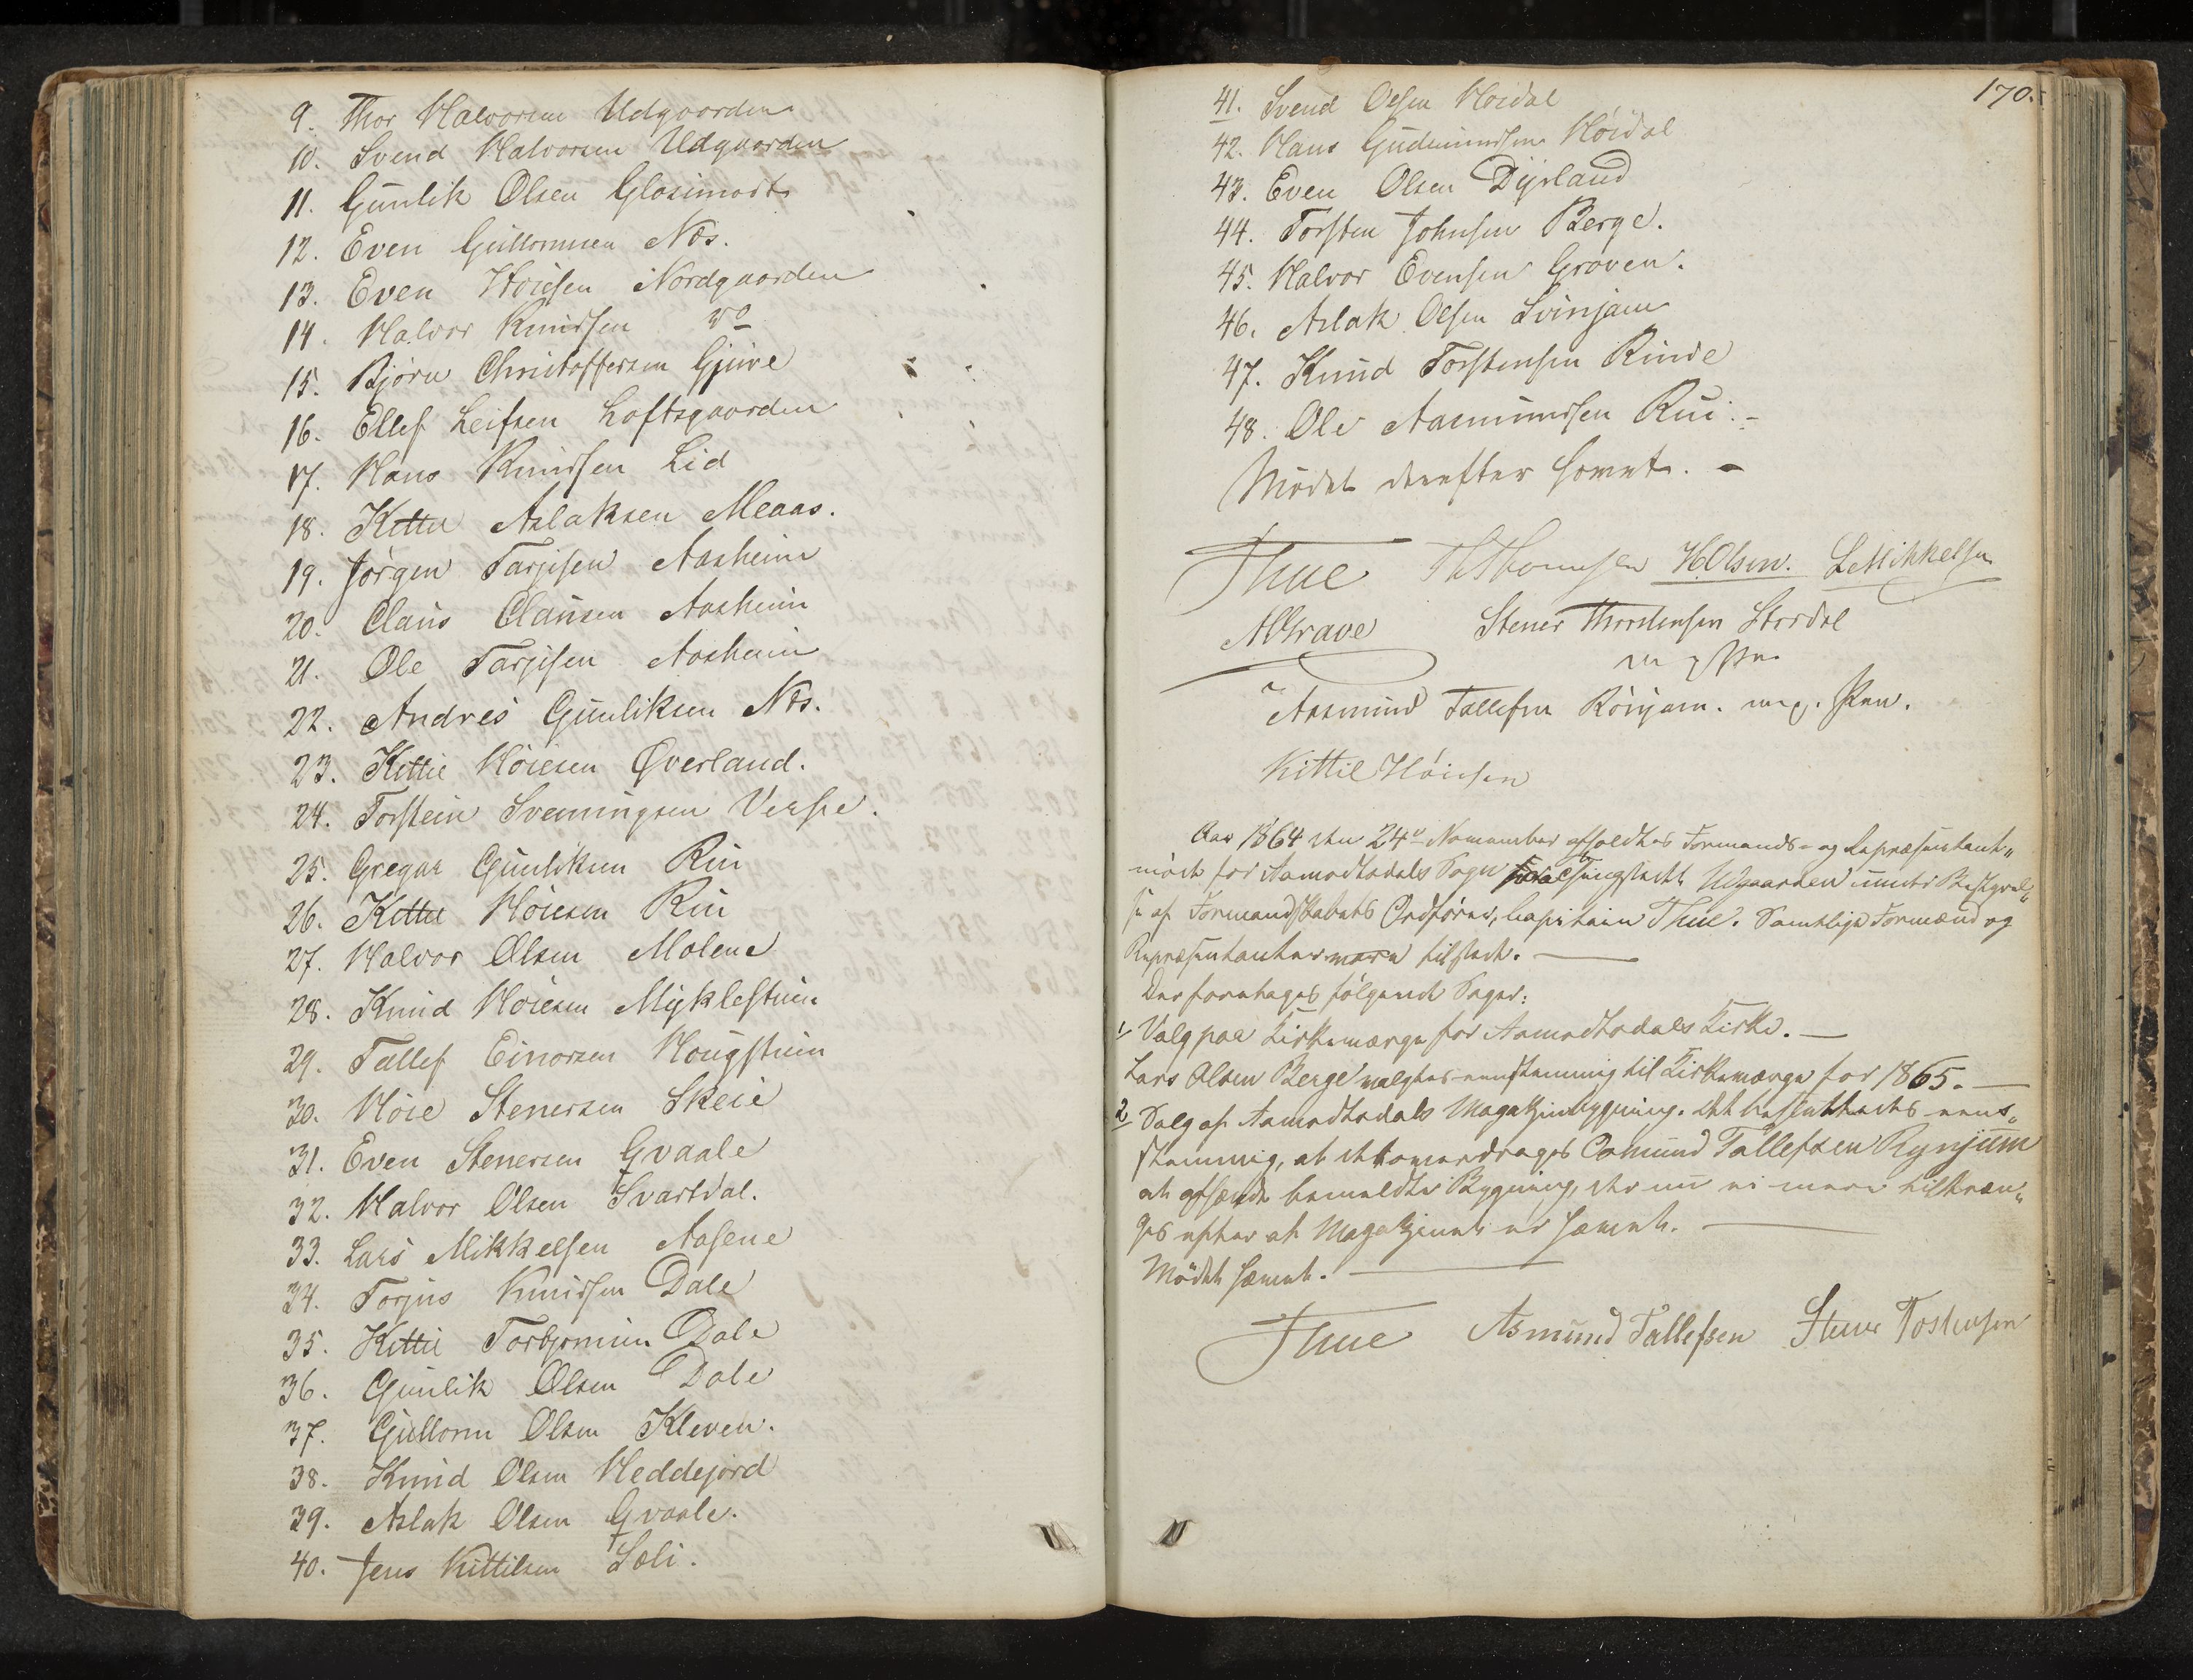 9. Thor Halvorsen Udgaarden
10. Svend Halvorsen Udgaarden
11. Gunlik Olsen Glosimodt
12. Even Gullormsen Næs.
13. Even Høiesen Nordgaarden
14. Halvor Knudsen do
15. Bjørn Christoffersen Gjuve
16. Ellef Leifsen Loftsgaarden
17. Hans Knudsen Lid
18. Kittil Aslaksen Meaas.
19. Jörgen Tarjesen Aasheim
20. Claus Clausen Aasheim
21. Ole Tarjesen Aasheim
22. Andres Gunliksen Næs.
23. Kittil Høiesen Øverland.
24. Torstein Svenningsen
25. Gregar Gunliksen Rui
26. Kittil Høiesen Rui
27. Halvor Olsen Molene
28. Knud Høiesen Myklestuen
29. Tallef Einarsen Hougstuen
30. Høie Stenersen Skeie
31. Even Stenersen Qvaale
32. Halvor Olsen Svartdal.
33. Lars Mikkelsen Aasene
34. Torjus Knudsen Dale
35. Kittil Torbjørnsen Dale
36. Gunlik Olsen Dale
37. Gullorm Olsen Kleven.
38. Knud Olsen Heddejord
39. Aslak Olsen Qvaale.
40. Jens Kittilsen Sæli.
170.
41. Svend Olsen Høidal
42. Hans Gudmundsen Høidal
43. Even Olsen Dyrland
44. Torsten Johnsen Berge.
45. Halvor Evensen Groven.
46. Aslak Olsen Svinjam
47. Knud Torstensen Rinde
48. Ole Aasmundsen Rui. -
Mødet derefter hævet. -
Thue Th Thomesen H.Olsen. L Mikkelsen
A Grave Stener Thorstensen Stordal
m. p. Pen.
Aasmund Tallefsen Rönjam. m. p. Pen.
Kittil Høiesen
Aar 1864 den 24de November afholdtes Formands- og Repræsentant„
møde for Aamodtsdals Sogn paa Thingstedet Udgaarden under Bestyrel„
se af Formandskabets Ordfører, Capitain Thue. Samtlige Formænd og
Repræsentanter vare tilstede. —
Der foretages følgende Sager:
1, Valg paa Kirkeværge for Aamodtsdals Kirke. —
Lars Olsen Berge valgtes eenstemmig til Kirkeværge for 1865. —
2 Salg af Aamodtsdals Magazinbygning. Det besluttedes eens„
stemmig, at det overdrages Asmund Tallefsen Rynjum
at afhænde bemeldte Bygning, der nu ei mere tiltræn„
ges efter at Magazinet er hævet. —
Mødet hævet. —
Thue Asmund Tallefsen Stener Tostensen